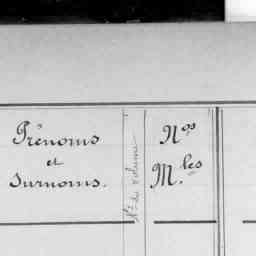 Prénoms
et
Surnoms.
Nº du volume
Nos
M.les